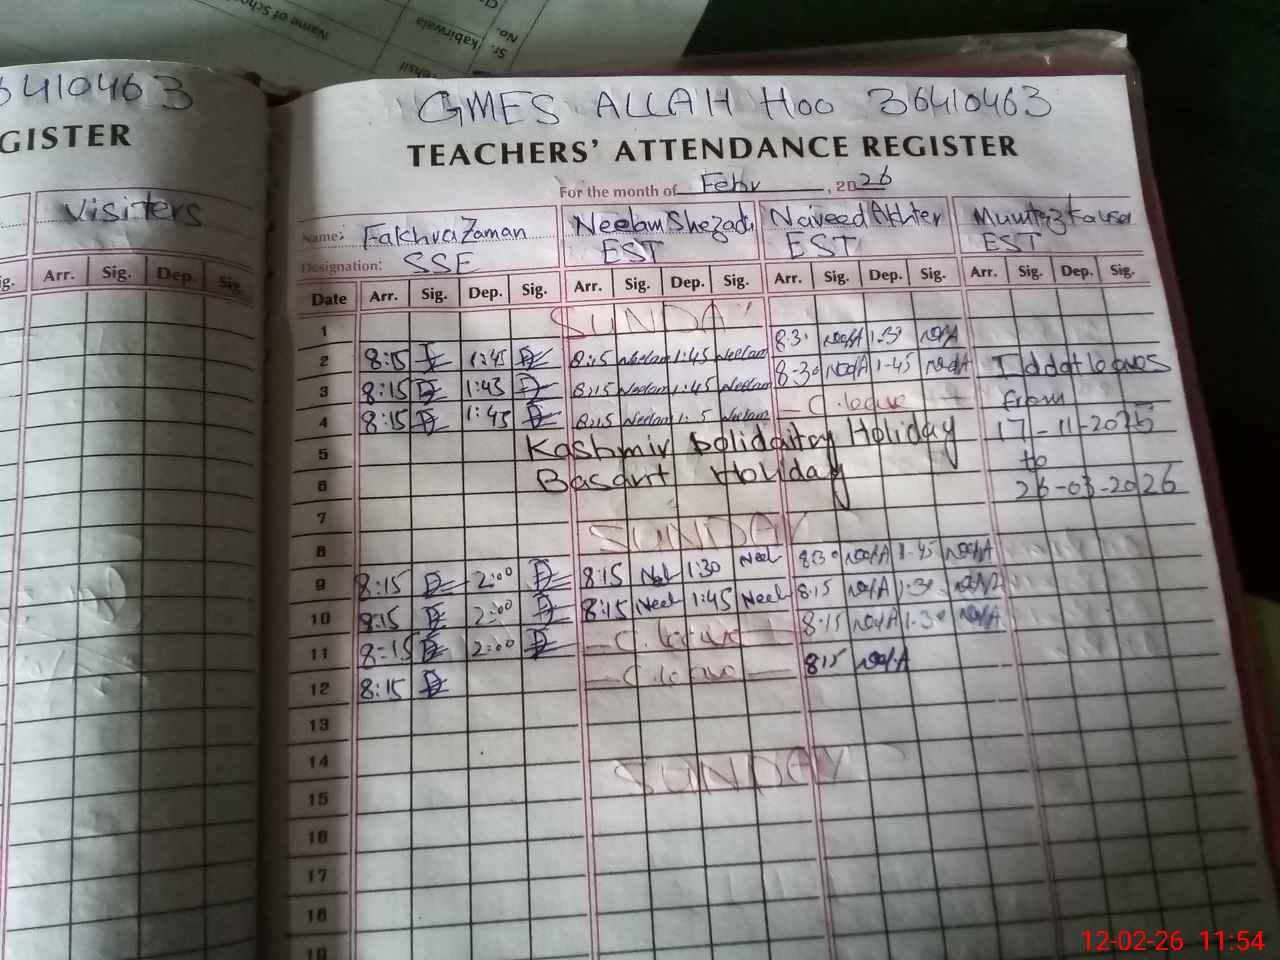 Name of School
Sr. No.
kabirwala
36410463
GISTER
Visiters
Arr. Sig. Dep. Sig.
GMES ALLAH HOO 36410463
TEACHERS' ATTENDANCE REGISTER
For the month of Febr, 2026
Name: Fakhra Zaman Neelam Shezadi Naveed Akhter Mumtaz Kausar
Designation: SSE EST EST EST
Date Arr. Sig. Dep. Sig. Arr. Sig. Dep. Sig. Arr. Sig. Dep. Sig. Arr. Sig. Dep. Sig.
1 SUNDAY
2 8:15 1:45 8:15 Neelam 1:45 Neelam 8:30 1:30
3 8:15 1:45 8:15 Neelam 1:45 Neelam 8:30 1-45 Iddat leaves
4 8:15 1:45 8:15 Neelam Neelam C. leave from
5 Kashmir Solidaitry Holiday 17-11-2025
to
6 Basant Holiday 26-03-2026
7
8 SUNDAY
9 8:15 2:00 8:15 Neel 1:30 Neel 8:30 1-45
10 8:15 2:00 8:15 Neel 1:45 Neel 8:15 1:30
11 8:15 2:00 C. leave 8:15 1:30
12 8:15 C. leave 8:15
13
14
15 SUNDAY
16
17
18
19
12-02-26 11:54